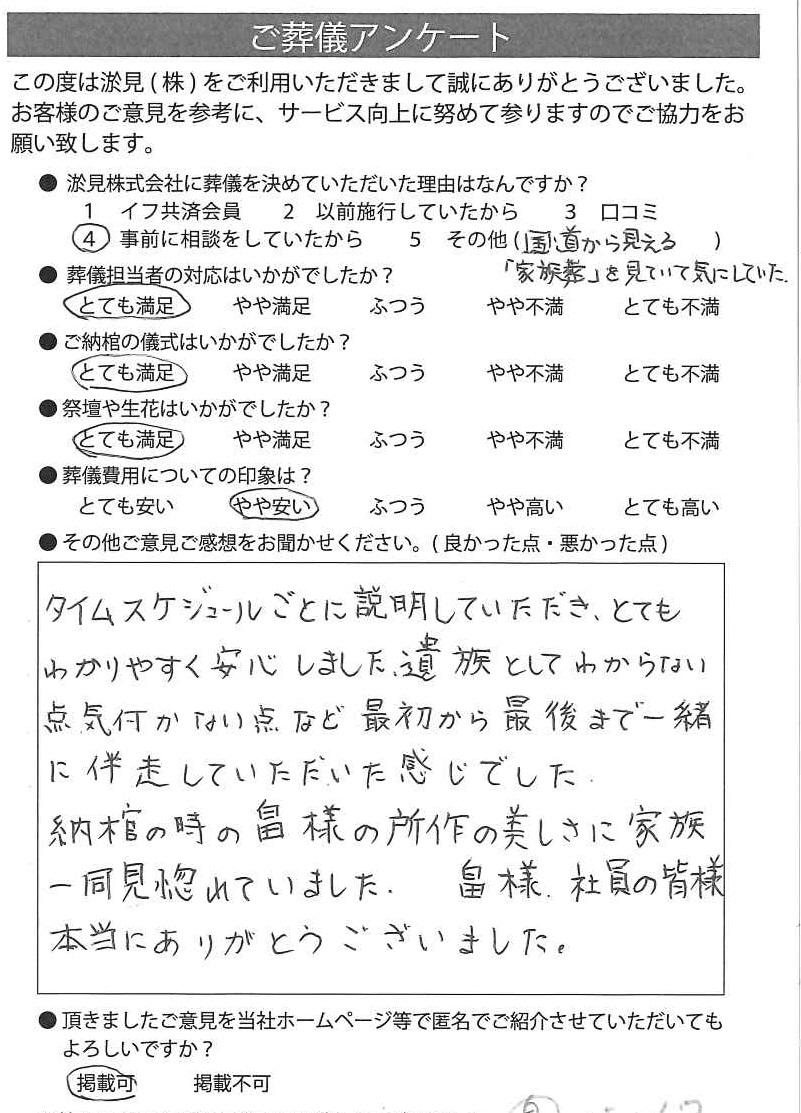 ご葬儀アンケート
この度は淤見(株)をご利用いただきまして誠にありがとうございました。
お客様のご意見を参考に、サービス向上に努めて参りますのでご協力をお
願い致します。
● 淤見株式会社に葬儀を決めていただいた理由はなんですか？
1 イフ共済会員 2 以前施行していたから 3 口コミ
4 事前に相談をしていたから 5 その他(国道から見える )
「家族葬」を見ていて気にしていた.
● 葬儀担当者の対応はいかがでしたか？
とても満足 やや満足 ふつう やや不満 とても不満
● ご納棺の儀式はいかがでしたか？
とても満足 やや満足 ふつう やや不満 とても不満
● 祭壇や生花はいかがでしたか？
とても満足 やや満足 ふつう やや不満 とても不満
● 葬儀費用についての印象は？
とても安い やや安い ふつう やや高い とても高い
● その他ご意見ご感想をお聞かせください。(良かった点・悪かった点)
タイムスケジュールごとに説明していただき、とても
わかりやすく安心しました、遺族としてわからない
点気付かない点など最初から最後まで一緒
に伴走していただいた感じでした.
納棺の時の畠様の所作の美しさに家族
一同見惚れていました. 畠様. 社員の皆様
本当にありがとうございました。
● 頂きましたご意見を当社ホームページ等で匿名でご紹介させていただいても
よろしいですか？
掲載可 掲載不可